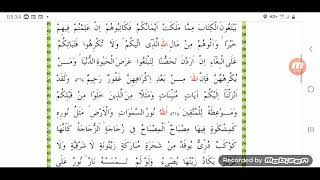 05:34
يَبْتَغُونَ الْكِتَابَ مِمَّا مَلَكَتْ أَيْمَانُكُمْ فَكَاتِبُوهُمْ إِنْ عَلِمْتُمْ فِيهِمْ
خَيْرًا وَآتُوهُمْ مِنْ مَالِ اللَّهِ الَّذِي آتَاكُمْ وَلَا تُكْرِهُوا فَتَيَاتِكُمْ
عَلَى الْبِغَاءِ إِنْ أَرَدْنَ تَحَصُّنًا لِتَبْتَغُوا عَرَضَ الْحَيَاةِ الدُّنْيَا وَمَنْ
يُكْرِهْهُنَّ فَإِنَّ اللَّهَ مِنْ بَعْدِ إِكْرَاهِهِنَّ غَفُورٌ رَحِيمٌ ﴿٣٣﴾ وَلَقَدْ
أَنْزَلْنَا إِلَيْكُمْ آيَاتٍ مُبَيِّنَاتٍ وَمَثَلًا مِنَ الَّذِينَ خَلَوْا مِنْ قَبْلِكُمْ
وَمَوْعِظَةً لِلْمُتَّقِينَ ﴿٣٤﴾ اللَّهُ نُورُ السَّمَوَاتِ وَالْأَرْضِ مَثَلُ نُورِهِ
كَمِشْكَوةٍ فِيهَا مِصْبَاحٌ الْمِصْبَاحُ فِي زُجَاجَةٍ الزُّجَاجَةُ كَأَنَّهَا
كَوْكَبٌ دُرِّيٌّ يُوقَدُ مِنْ شَجَرَةٍ مُبَارَكَةٍ زَيْتُونَةٍ لَا شَرْقِيَّةٍ وَلَا
يَكَادُ زَيْتُهَا يُضِيءُ وَلَوْ لَمْ تَمْسَسْهُ نَارٌ نُورٌ عَلَى
Recorded by
MOBIZEN